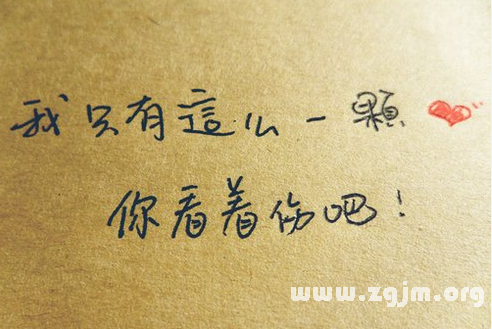 我只有這么一顆❤
你看着伤吧！
www.zgjm.org